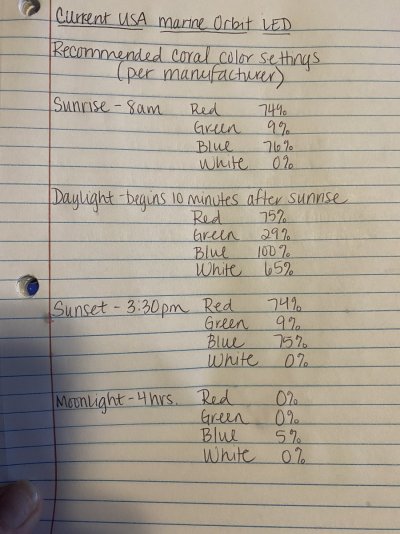 Current USA marine Orbit LED
Recommended coral color settings
(per manufacturer)
Sunrise - 8am Red 74%
Green 9%
Blue 76%
White 0%
Daylight - begins 10 minutes after sunrise
Red 75%
Green 29%
Blue 100%
White 65%
Sunset - 3:30pm Red 74%
Green 9%
Blue 75%
White 0%
Moonlight - 4hrs. Red 0%
Green 0%
Blue 5%
White 0%